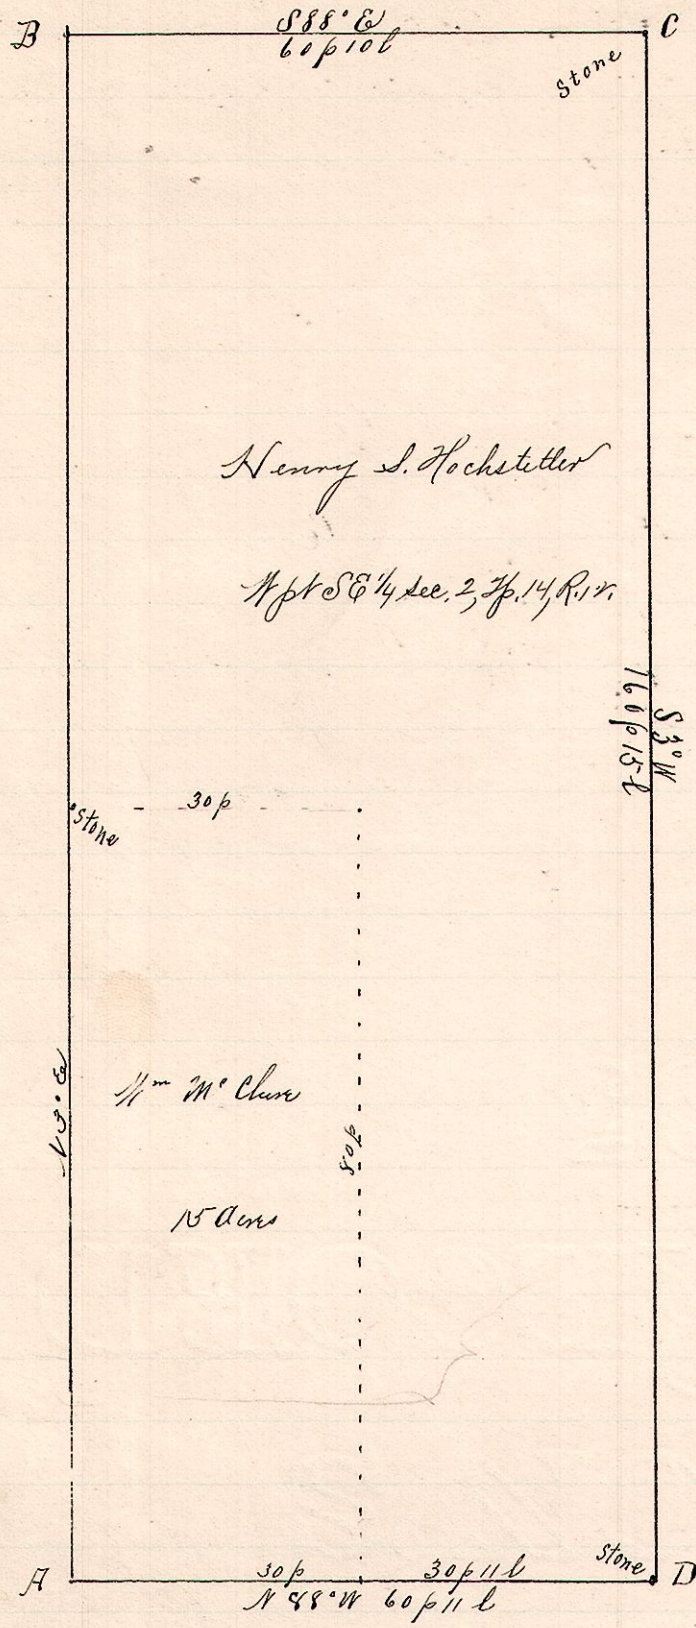 B
S88°E
60p10l
C
Stone
Henry S. Hochstetler
W pt SE 1/4 Sec. 2, Tp. 14, R. 12.
S 3° W
160p15l
30p
Stone
N 3° E
Wm Mc Clure
80p
15 Acres
Stone
A
30p
30p11l
D
N 88° W 60p11l